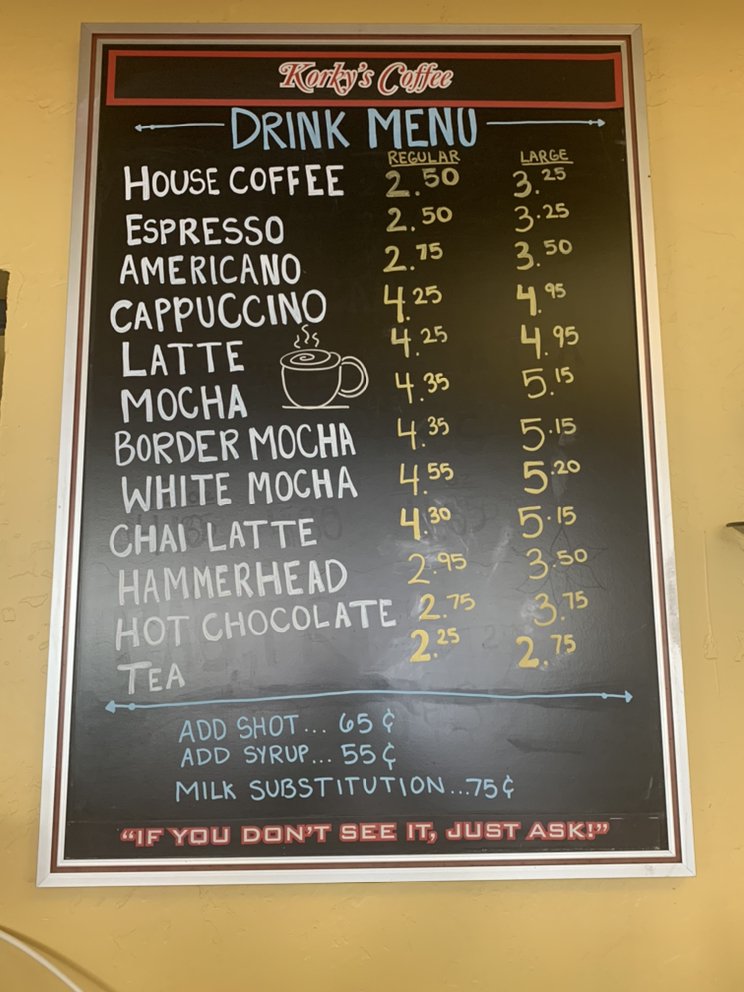 Korky's Coffee
DRINK MENU
REGULAR LARGE
HOUSE COFFEE 2.50 3.25
ESPRESSO 2.50 3.25
AMERICANO 2.75 3.50
CAPPUCCINO 4.25 4.95
LATTE 4.25 4.95
MOCHA 4.35 5.15
BORDER MOCHA 4.35 5.15
WHITE MOCHA 4.55 5.20
CHAI LATTE 4.30 5.15
HAMMERHEAD 2.95 3.50
HOT CHOCOLATE 2.75 3.75
TEA 2.25 2.75
ADD SHOT... 65¢
ADD SYRUP... 55¢
MILK SUBSTITUTION...75¢
“IF YOU DON'T SEE IT, JUST ASK!”